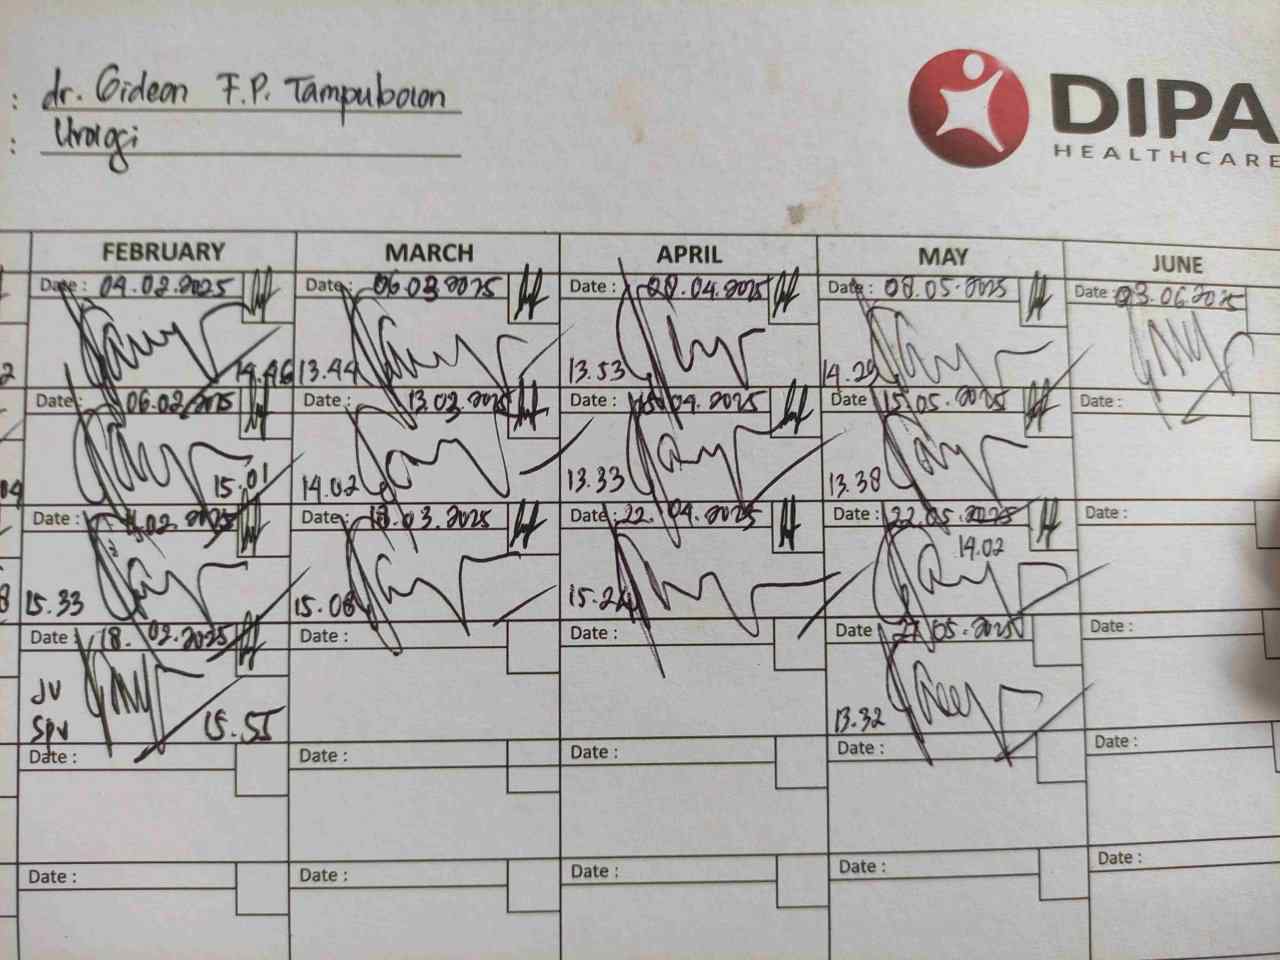 : dr. Gideon F.P. Tampubolon
: Urologi
DIPA
HEALTHCARE
FEBRUARY MARCH APRIL MAY JUNE
Date: 04.02.2025 Date: 06.03.2025 Date: .04.2025 Date: 08.05.2025 Date: 03.06.2025
2 14.46 13.44 13.53 14.29
Date: 06.02.2025 Date: 13.03.2025 Date: 15.04.2025 Date 15.05.2025 Date:
04 15.01 14.02 13.33 13.38
Date: 11.02.2025 Date: 18.03.2025 Date: 22.04.2025 Date: 22.05.2025 Date:
14.02
8 15.33 15.08 15.24
Date: 18.02.2025 Date: Date: Date 27.05.2025 Date:
JV
Spv 15.55 13.32
Date: Date: Date: Date: Date:
Date: Date: Date: Date: Date: